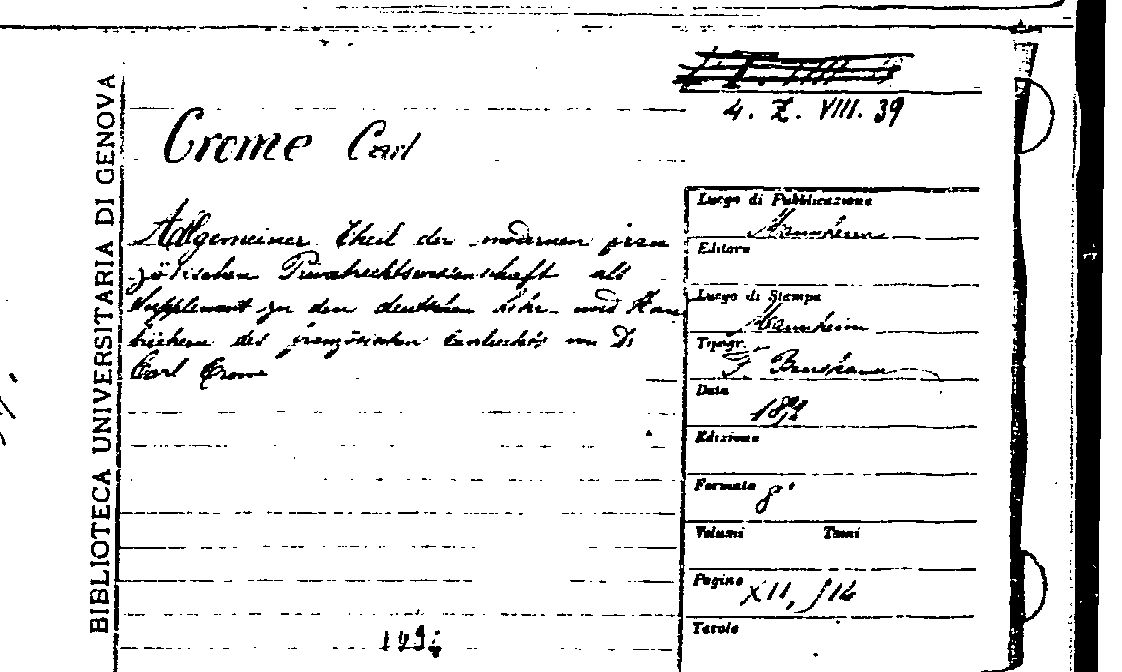 BIBLIOTECA UNIVERSITARIA DI GENOVA
4. Z. VIII. 39
Crome Carl
Allgemeiner Theil der modernen fran
zösischen Privatrechtswissenschaft als
Supplement zu den deutschen Lehr- und Han
büchern des französischen von Dr
Carl Crome
Luogo di Pubblicazione
Mannheim
Editore
Luogo di Stampa
Mannheim
Tipogr.
J. Bensheimer
Data
1892
Edizione
Formato 8°
Volumi Tomi
Pagine XII,
Tavole